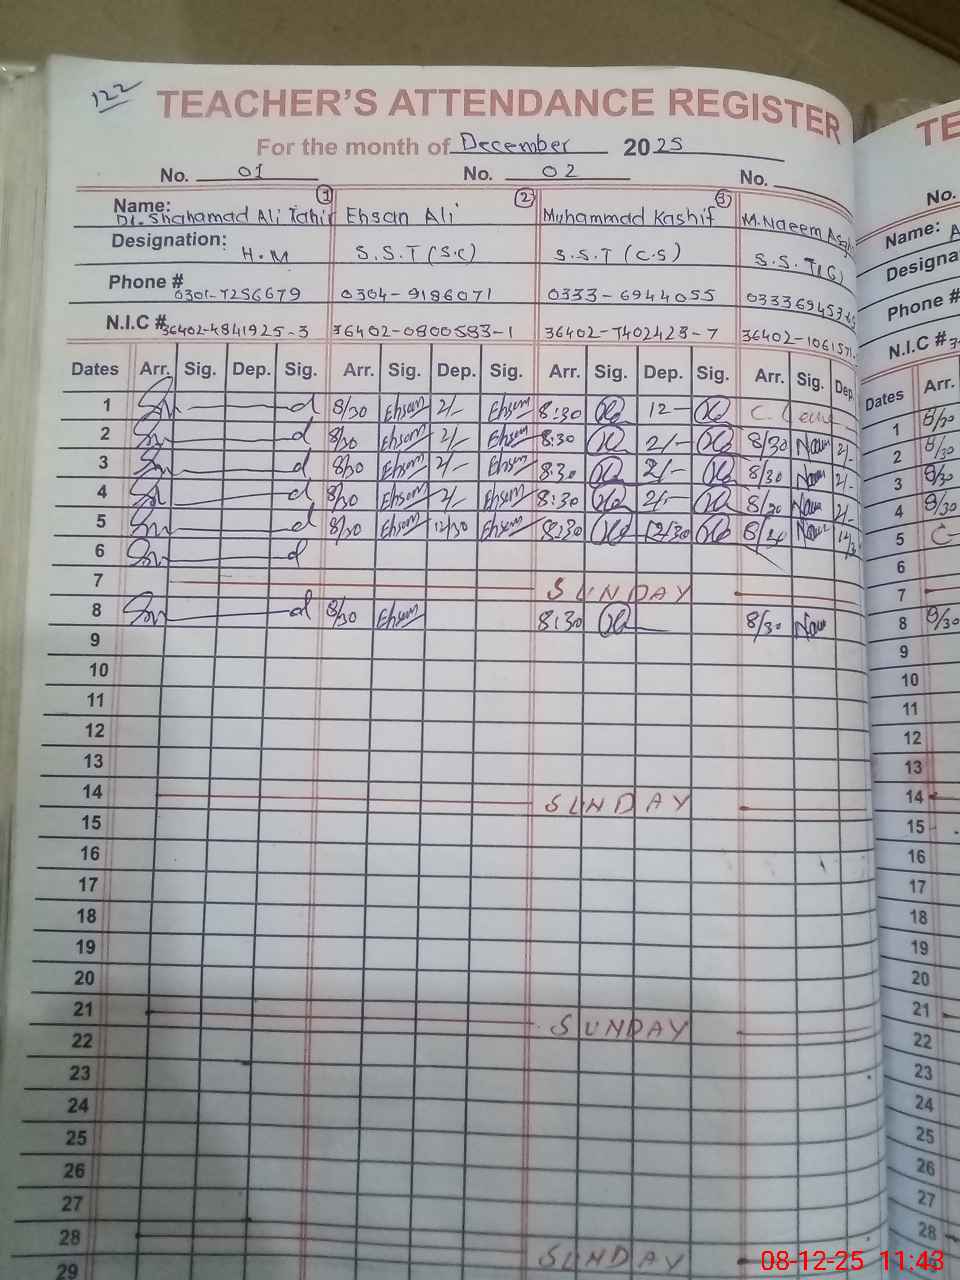 122
TEACHER'S ATTENDANCE REGISTER
For the month of December 2025
No. 01 No. 02 No.
1 2 3
Name: Dr. Shahamad Ali Tahir Ehsan Ali Muhammad Kashif M. Naeem
Designation: H.M S.S.T (SC) S.S.T (C.S) S.S.T(G)
Phone # 0301-7256679 0304-9186071 0333-6944055
N.I.C # 36402-4841925-3 36402-0800583-1 36402-7402423-7 36402-10615
Dates Arr. Sig. Dep. Sig. Arr. Sig. Dep. Sig. Arr. Sig. Dep. Sig. Arr. Sig. Dep.
1 8/30 Ehsan 2/- Ehsan 8:30 12-
2 8/30 Ehsan 2/- Ehsan 8:30 2/- 8/30 2/-
3 8/30 Ehsan 2/- Ehsan 8:30 2/- 8/30 2/-
4 8/30 Ehsan 2/- Ehsan 8:30 2/- 8/30 2/-
5 8/30 Ehsan 12/30 Ehsan 8:30 12/30
6
7 SUNDAY
8 8/30 Ehsan 8:30 8/30
9
10
11
12
13
14 SUNDAY
15
16
17
18
19
20
21 SUNDAY
22
23
24
25
26
27
28 SUNDAY
29
TE
No.
Name: A
Designa
Phone #
N.I.C #
Dates Arr.
1 8/30
2 8/30
3 8/30
4 8/30
5 C-
6
7
8 8/30
9
10
11
12
13
14
15
16
17
18
19
20
21
22
23
24
25
26
27
28
08-12-25 11:43